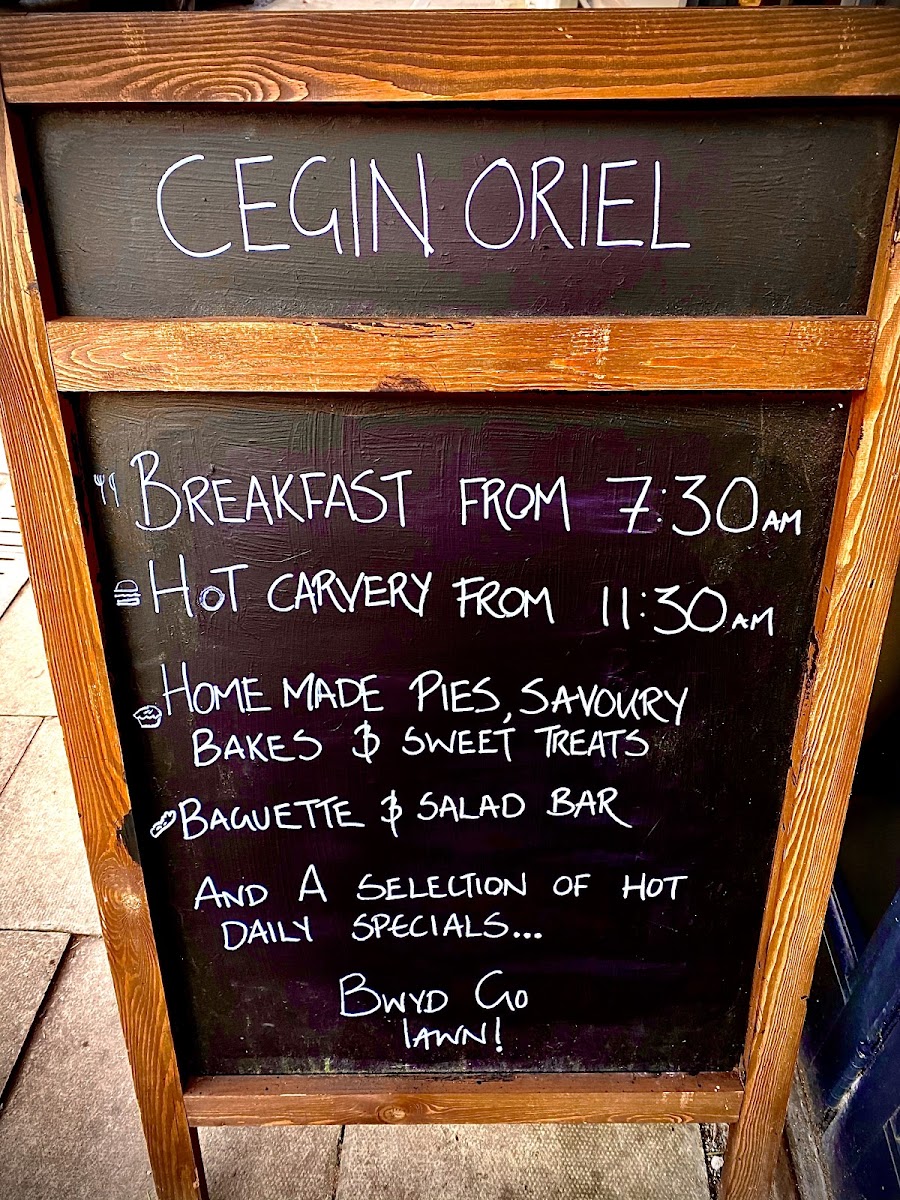 CEGIN ORIEL
BREAKFAST FROM 7:30AM
HOT CARVERY FROM 11:30AM
HOME MADE PIES, SAVOURY
BAKES & SWEET TREATS
BAGUETTE & SALAD BAR
AND A SELECTION OF HOT
DAILY SPECIALS...
BWYD GO
IAWN!